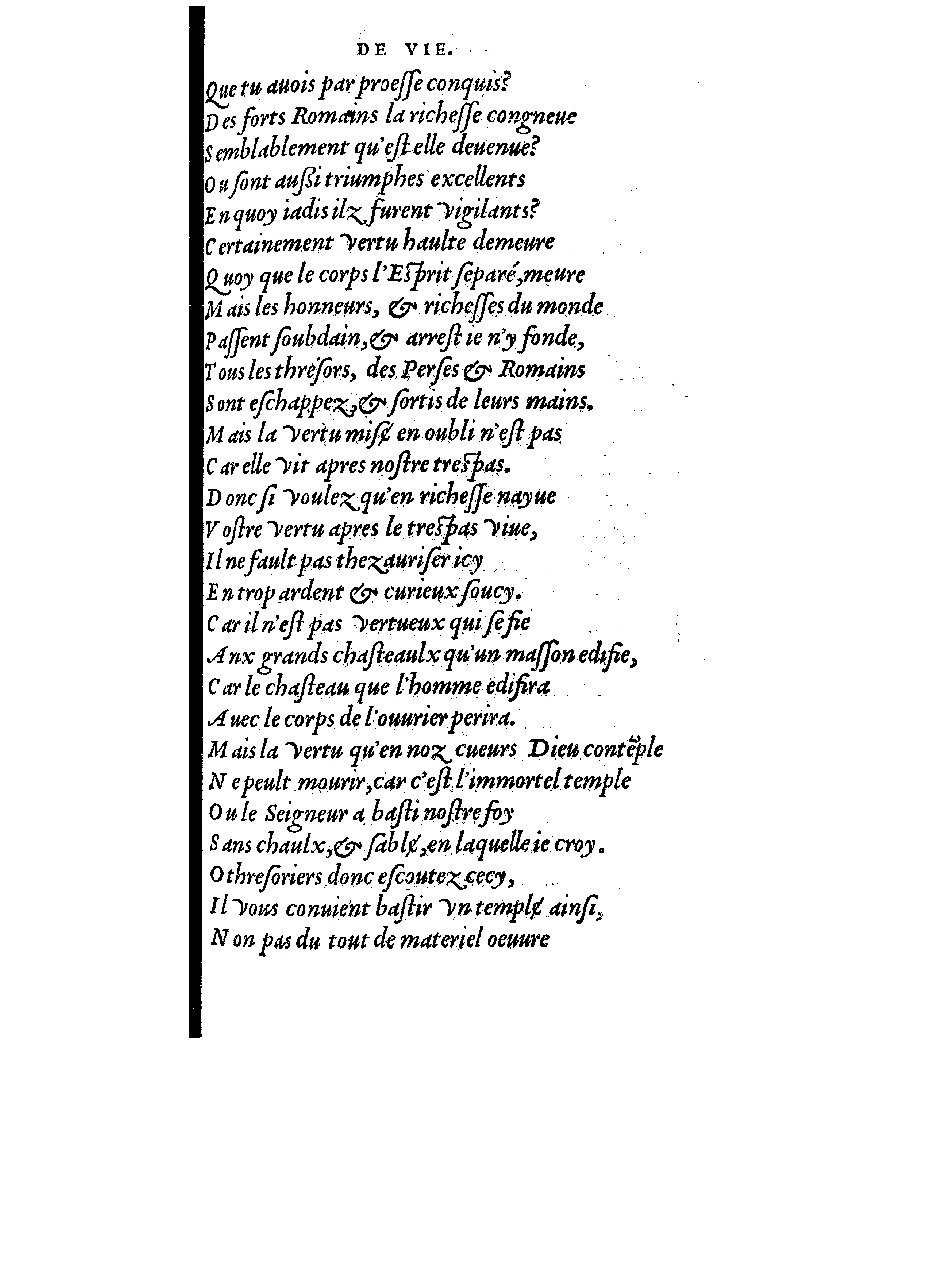 DE VIE.
Que tu auois par proeſſe conquis?
Des forts Romains la richeſſe congneue
Semblablement qu'eſt elle deuenue?
Ou ſont außi triumphes excellents
En quoy iadis ilz furent vigilants?
Certainement vertu haulte demeure
Quoy que le corps l'Eſprit ſeparé, meure
Mais les honneurs, & richeſſes du monde
Paſſent ſoubdain, & arreſt ie n'y fonde,
Tous les threſors, des Perſes & Romains
Sont eſchappez, & ſortis de leurs mains.
Mais la vertu miſɇ en oubli n'eſt pas
Car elle vit apres noſtre treſpas.
Donc ſi voulez qu'en richeſſe nayue
Voſtre vertu apres le treſpas viue,
Il ne fault pas thezauriſer icy
En trop ardent & curieux ſoucy.
Car il n'eſt pas vertueux qui ſe fie
Anx grands chaſteaulx qu'un maſſon edifie,
Car le chaſteau que l'homme edifira
Auec le corps de l'ouurier perira.
Mais la vertu qu'en noz cueurs Dieu contẽple
Ne peult mourir, car c'eſt l'immortel temple
Ou le Seigneur a baſti noſtre foy
Sans chaulx, & ſablɇ, en laquelle ie croy.
O threſoriers donc eſcoutez cecy,
Il vous conuient baſtir vn templɇ ainſi,
Non pas du tout de materiel oeuure